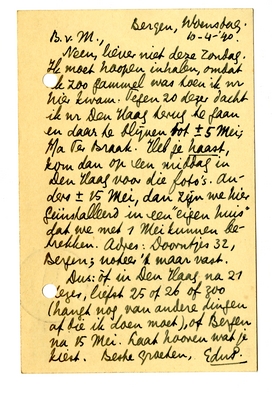 Bergen, Woensdag.
10-4-'40.
B.v.M.,
Neen, liever niet deze Zondag.
Ik moet hoopen inhalen, omdat
ik zoo gammel was toen ik nr
hier kwam. Tegen 20 dezer dacht
ik nr Den Haag terug te gaan
en daar te blijven tot ± 5 Mei,
Ma Ter Braak. Heb je haast,
kom dan op een middag in
Den Haag voor die foto's. An-
ders ± 15 Mei, dan zijn we hier
geïnstalleerd in een "eigen huis"
dat we met 1 Mei kunnen be-
trekken. Adres: Doorntjes 32,
Bergen; noteer 't maar vast.
Dus: òf in Den Haag na 21
dezer, liefst 25 of 26 of zoo
(hangt nog van andere dingen
af die ik doen moet), of Bergen
na 15 Mei. Laat hooren wat je
kiest. Beste groeten, EduP.